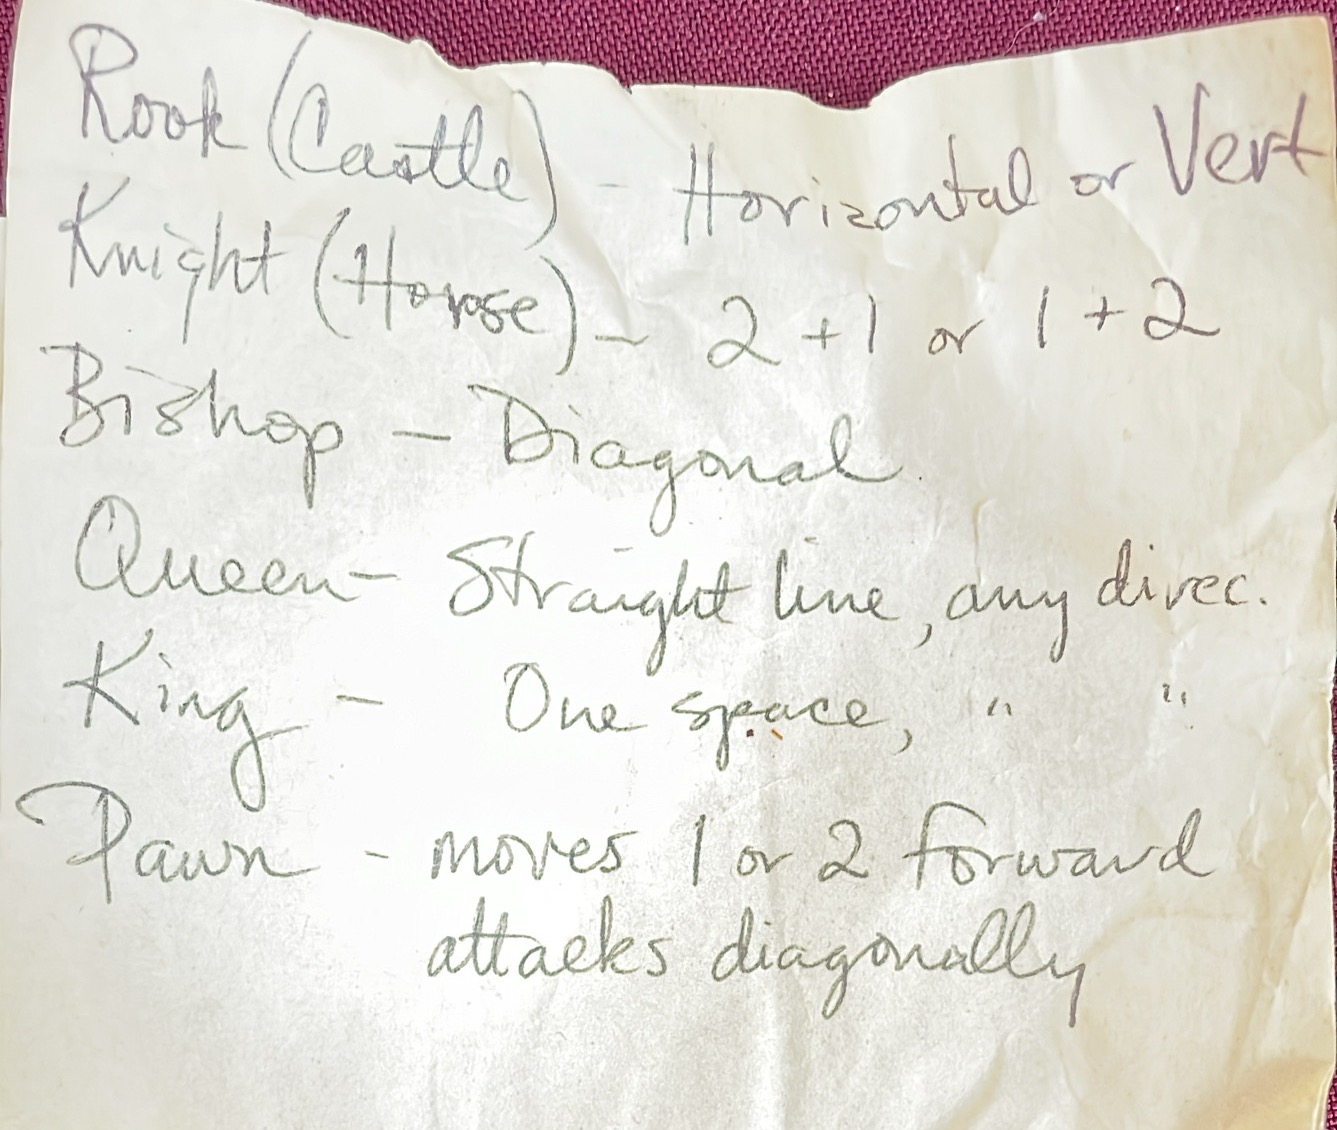 Rook (Castle) - Horizontal or Vert
Knight (Horse) - 2 + 1 or 1 + 2
Bishop - Diagonal.
Queen - Straight line, any direc.
King - One space, " "
Pawn - moves 1 or 2 forward
attacks diagonally